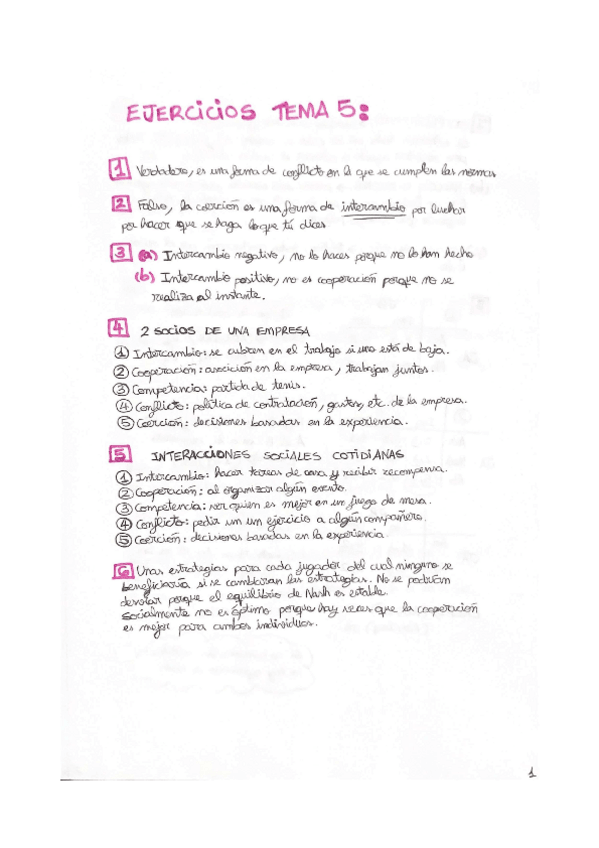 EJERCICIOS TEMA 5:
1 Verdadero, es una forma de conflicto en la que se cumplen las normas
2 Falso, la coerción es una forma de intercambio por luchar
por hacer que se haga lo que tú dices
3 (a) Intercambio negativo, no lo haces porque no lo han hecho
(b) Intercambio positivo, no es cooperación porque no se
realiza al instante.
4 2 SOCIOS DE UNA EMPRESA
① Intercambio: se cubren en el trabajo si uno está de baja.
② Cooperación: asociación en la empresa, trabajan juntos.
③ Competencia: partida de tenis.
④ Conflicto: política de contratación, gastos, etc. de la empresa.
⑤ Coerción: decisiones basadas en la experiencia.
5 INTERACCIONES SOCIALES COTIDIANAS
① Intercambio: hacer tareas de casa y recibir recompensa.
② Cooperación: al organizar algún evento.
③ Competencia: ver quien es mejor en un juego de mesa.
④ Conflicto: pedir un un ejercicio a algún compañero.
⑤ Coerción: decisiones basadas en la experiencia.
6 Unas estrategias para cada jugador del cual ninguno se
beneficiaría si se cambiaran las estrategias. No se podrían
desviar porque el equilibrio de Nash es estable.
Socialmente no es óptimo porque hay veces que la cooperación
es mejor para ambos individuos.
1